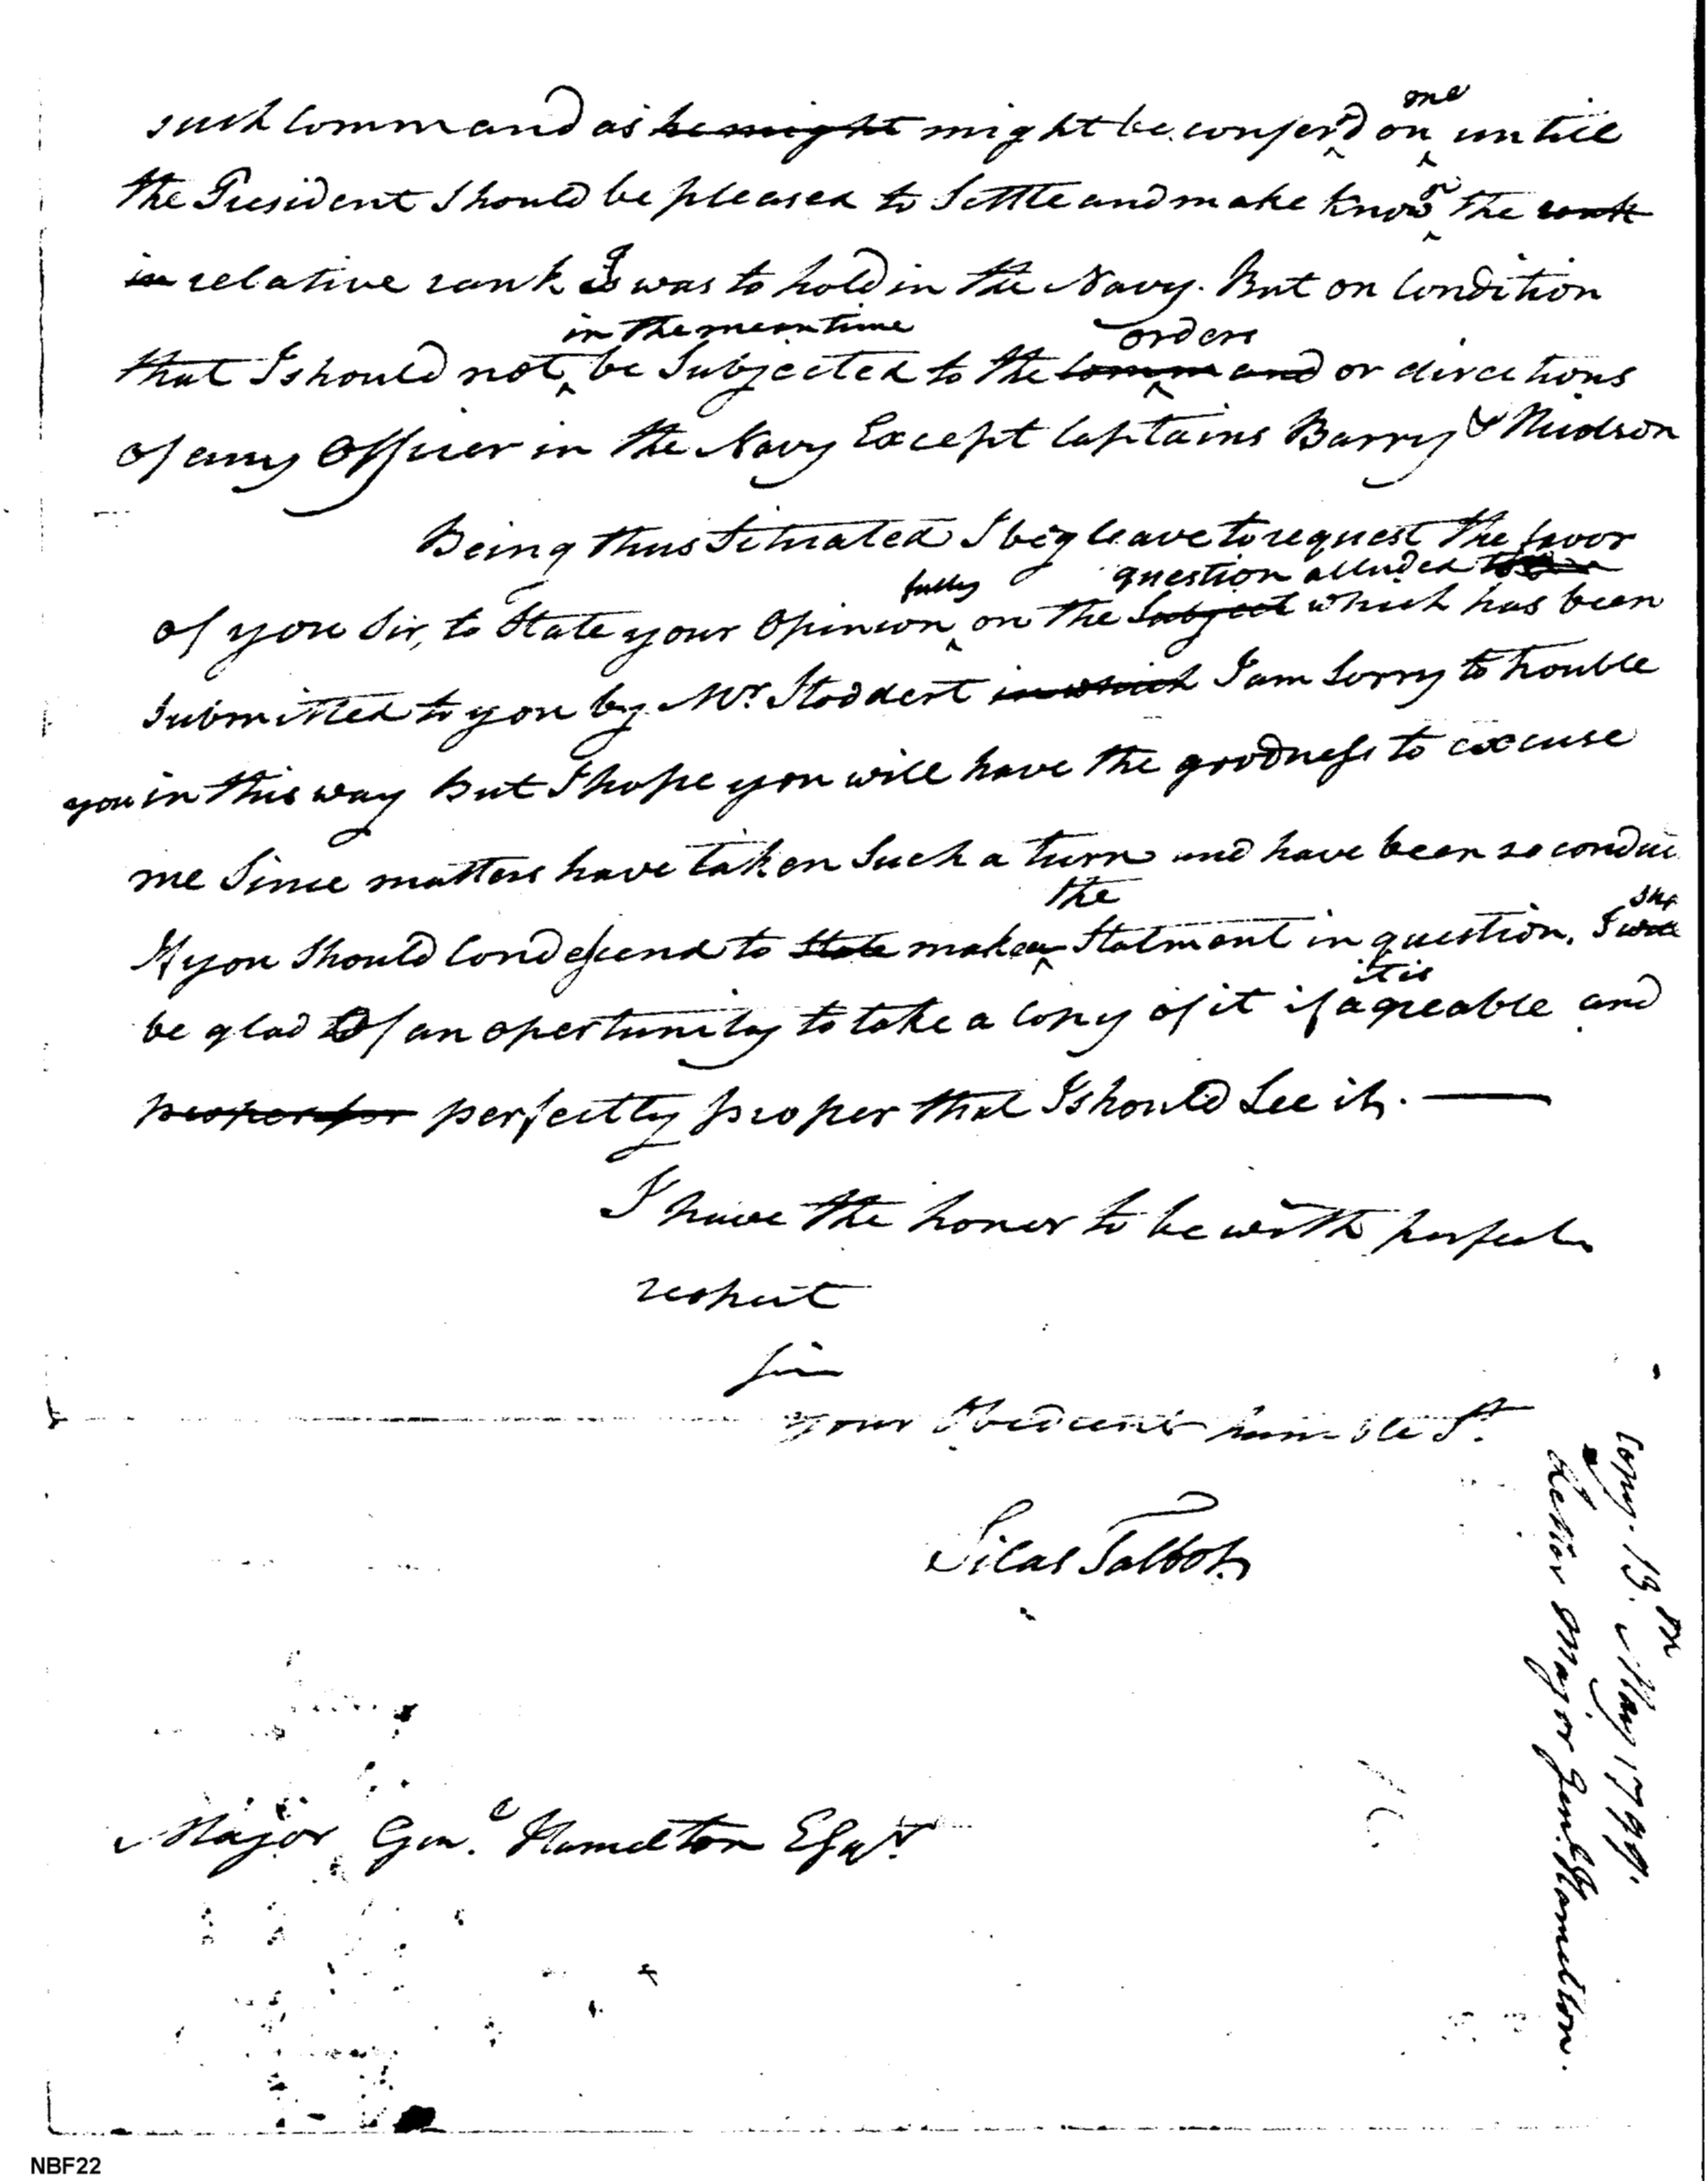 such Command as he might might be confer'd on me untill
the President Should be pleased to Settle and make known the rank
in relative rank I was to hold in the Navy. But on Condition
that I should not in the mean time be Subjected to the Command orders or directions
of any Officer in the Navy Except Captains Barry & Nicolson
Being thus Situated I beg leave to request the favor
of you Sir, to State your Opinion fully on the Subject question alluded to which has been
Submitted to you by Mr. Stoddert in which I am Sorry to trouble
you in this way But I hope you will have the goodness to excuse
me Since matters have taken Such a turn and have been so conduc
If you Should Condesend to State make a the Statment in question, I
be glad Of an opertunity to take a Copy of it if it is agreable and
proper for perfectly proper that I should See it. —
I have the honor to be with perfect
respect
Sir
your Obedient humble St.
Silas Talbot
Major Genl. Hamelton Esqr.
Copy. 13th May 1799.
Letter Major Genl. Hamelton.
NBF22